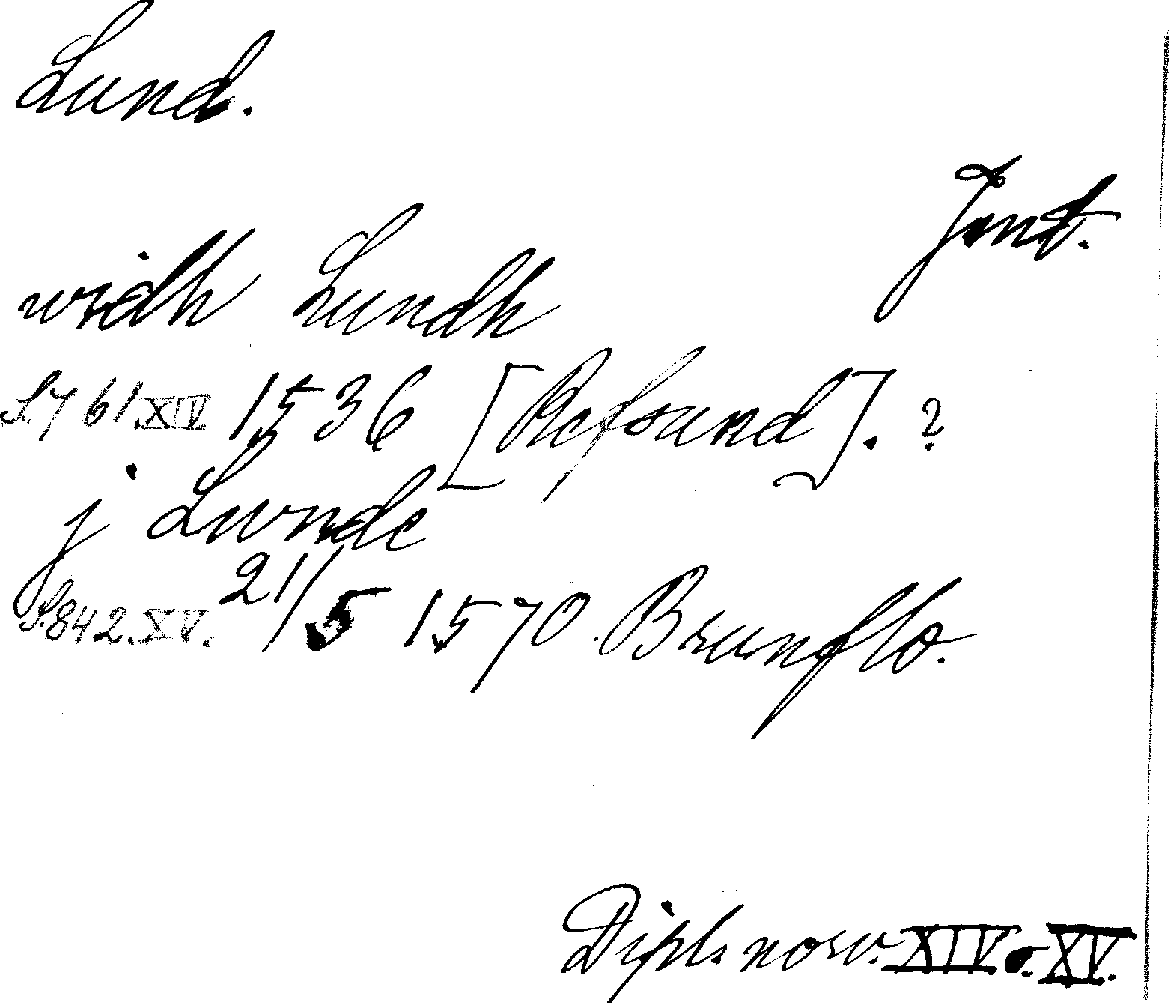 Lund.
Jmt.
widh Lundh
S. 761 XIV 1536 [Refsund]. ?
j Lunde
S. 842. XV. 21/5 1570. Brunflo.
Dipl. norv. XIV o. XV.